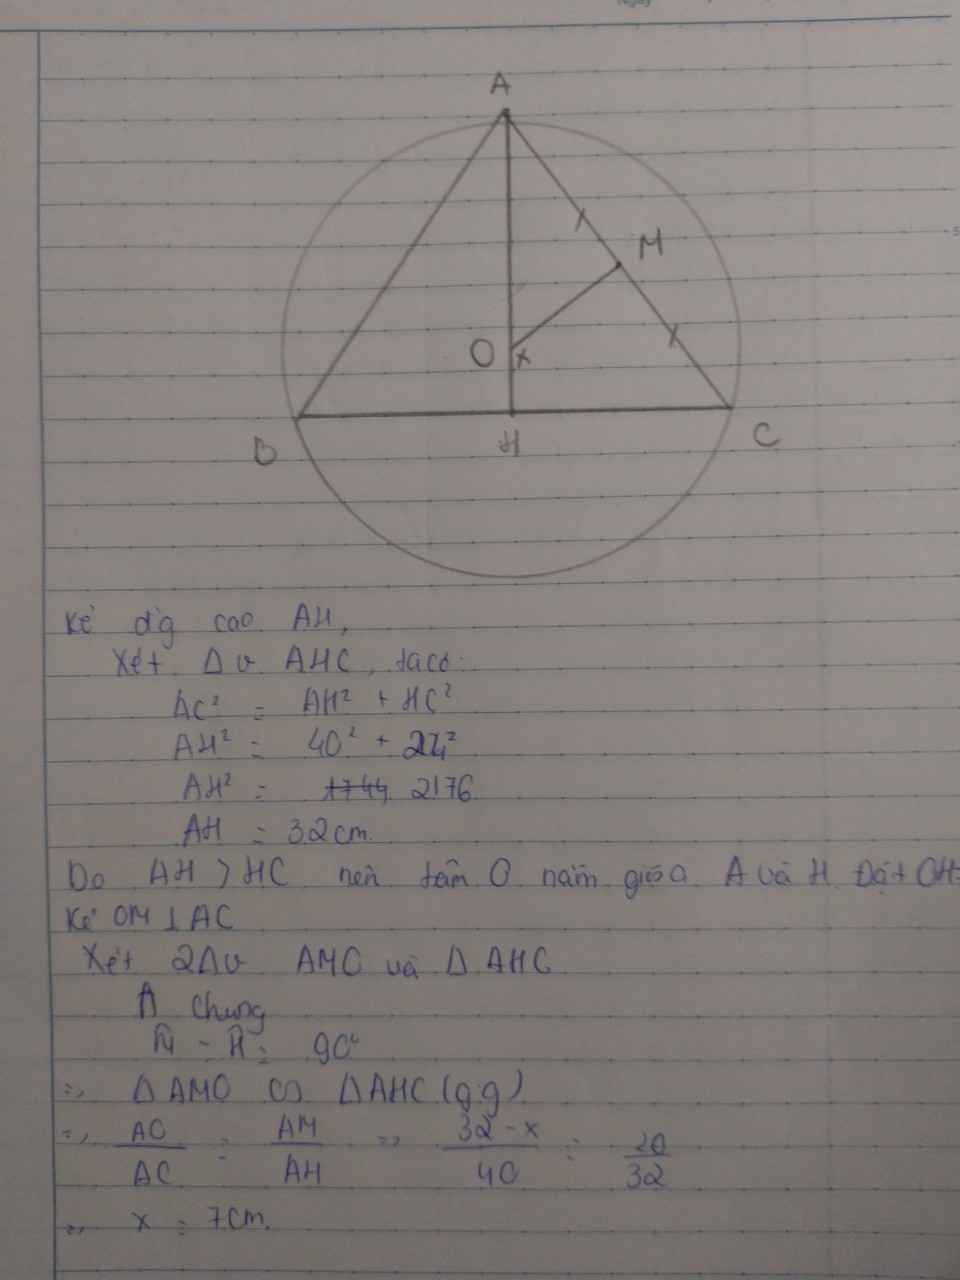 Ngày
A
M
O
x
B
H
C
Kẻ đ'g cao AH,
Xét Δv AHC, ta có:
AC² = AH² + HC²
AH² = 40² + 24²
AH² = 1744 2176
AH = 32cm.
Do AH > HC nên tâm O nằm giữa A và H. Đặt OH=
Kẻ OM ⊥ AC
Xét 2Δv AMO và Δ AHC
Â chung
M̂ = Ĥ = 90°
=> Δ AMO ∽ Δ AHC (g.g)
=> AO/AC = AM/AH => 32-x/40 = 20/32
=> x = 7cm.